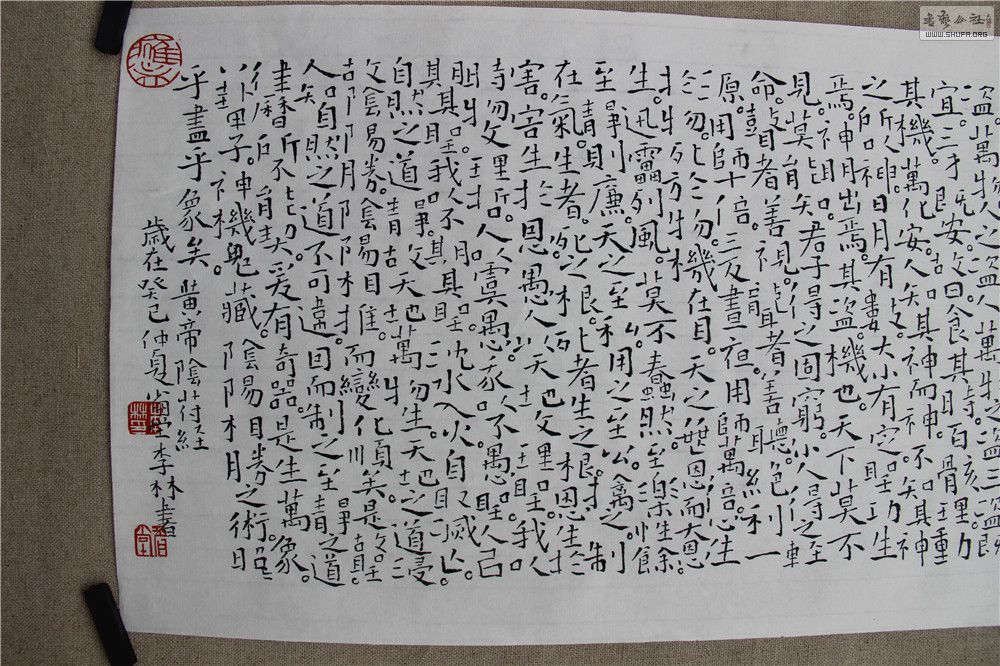 盜。萬物人之盜。人萬物之盜。三盜既
宜。三才既安。故曰食其時。百骸理。動
其機。萬化安。人知其神而神。不知其神
之所以神。日月有數。大小有定。聖功生
焉。神明出焉。其盜機也。天下莫不
見。莫能知。君子得之固窮。小人得之輕
命。瞽者善視。聾者善聽。絕利一
原。用師十倍。三反晝夜。用師萬倍。心生
於物。死於物。機在目。天之無恩而大恩
生。迅靁烈風。莫不蠢然。至樂生餘
至靜則廉。天之至私。用之至公。禽之制
在氣。生者死之根。死者生之根。恩生於
害。害生於恩。愚人以天地文理聖。我以
時物文理哲。人以虞愚。我以不愚聖。人以
期其聖。我以不期其聖。沈水入火。自取滅亡。
自然之道靜。故天地萬物生。天地之道浸
故陰易勝。陰易相推。而變化順矣。是故聖
人知自然之道不可違。因而制之。至靜之道
律曆所不能契。爰有奇器。是生萬象。
八卦甲子。神機鬼藏。陰陽相勝之術。昭昭
乎盡乎象矣。黃帝陰符經
歲在癸巳仲夏李林書
WWW.SHUFA.ORG